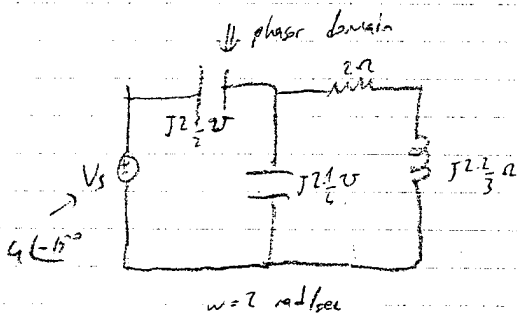 ⇓ phasor domain
2Ω
J2 1/2 ℧
Vs
J2 1/2 ℧
J2 2/3 Ω
4∠-15°
w=2 rad/sec